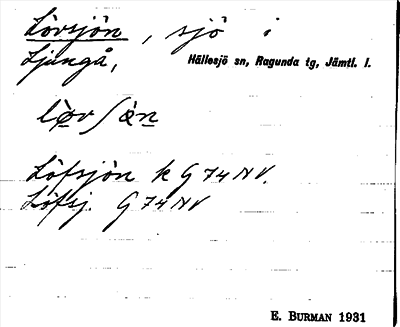 Lövsjön, sjö i
Ljungå, Hällesjö sn, Ragunda tg, Jämtl. l.
lø̀vʃø̀n
Löfsjön k G 74 NV.
Löfsj. G 74 NV
E. BURMAN 1931